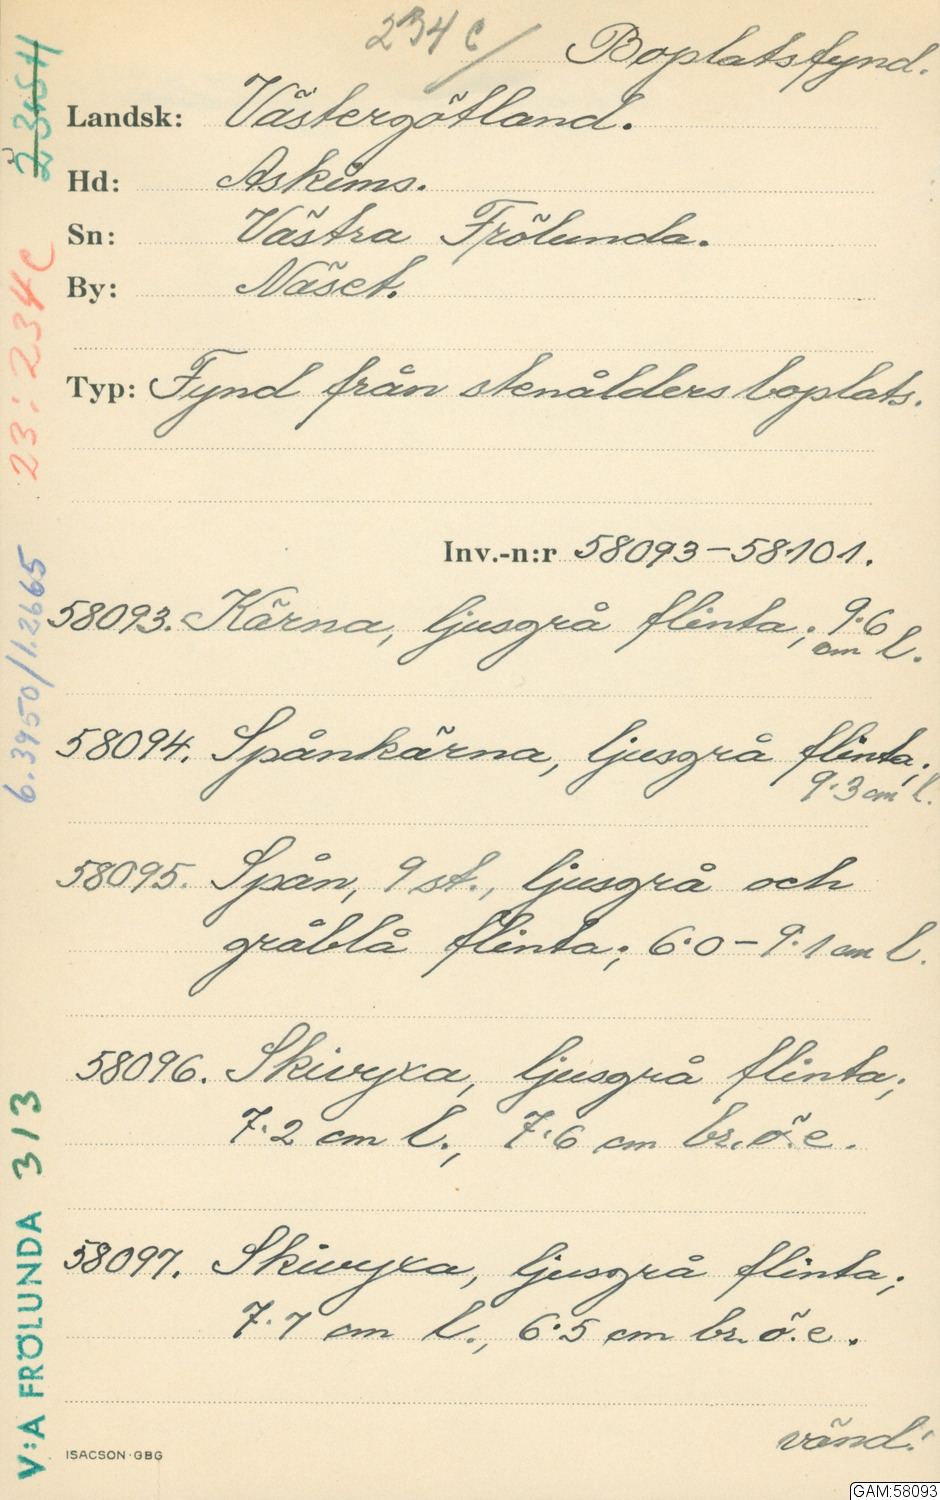 234 C
Boplatsfynd.
Landsk: Västergötland.
Hd: Askims.
Sn: Västra Frölunda.
By: Näset.
Typ: Fynd från stenålders boplats.
Inv.-n:r 58093-58101.
58093. Kärna, ljusgrå flinta; 9.6
cm l.
58094. Spånkärna, ljusgrå flinta;
9.3 cm l.
58095. Spån, 9 st., ljusgrå och
gråblå flinta; 6.0-9.1 cm l.
58096. Skivyxa, ljusgrå flinta;
7.2 cm l., 7.6 cm br. ö. e.
58097. Skivyxa, ljusgrå flinta;
7.7 cm l., 6.5 cm br. ö. e.
vänd!
ISACSON·GBG
V:A FRÖLUNDA 313
6.3950/1.2665
23:234C
GAM:58093